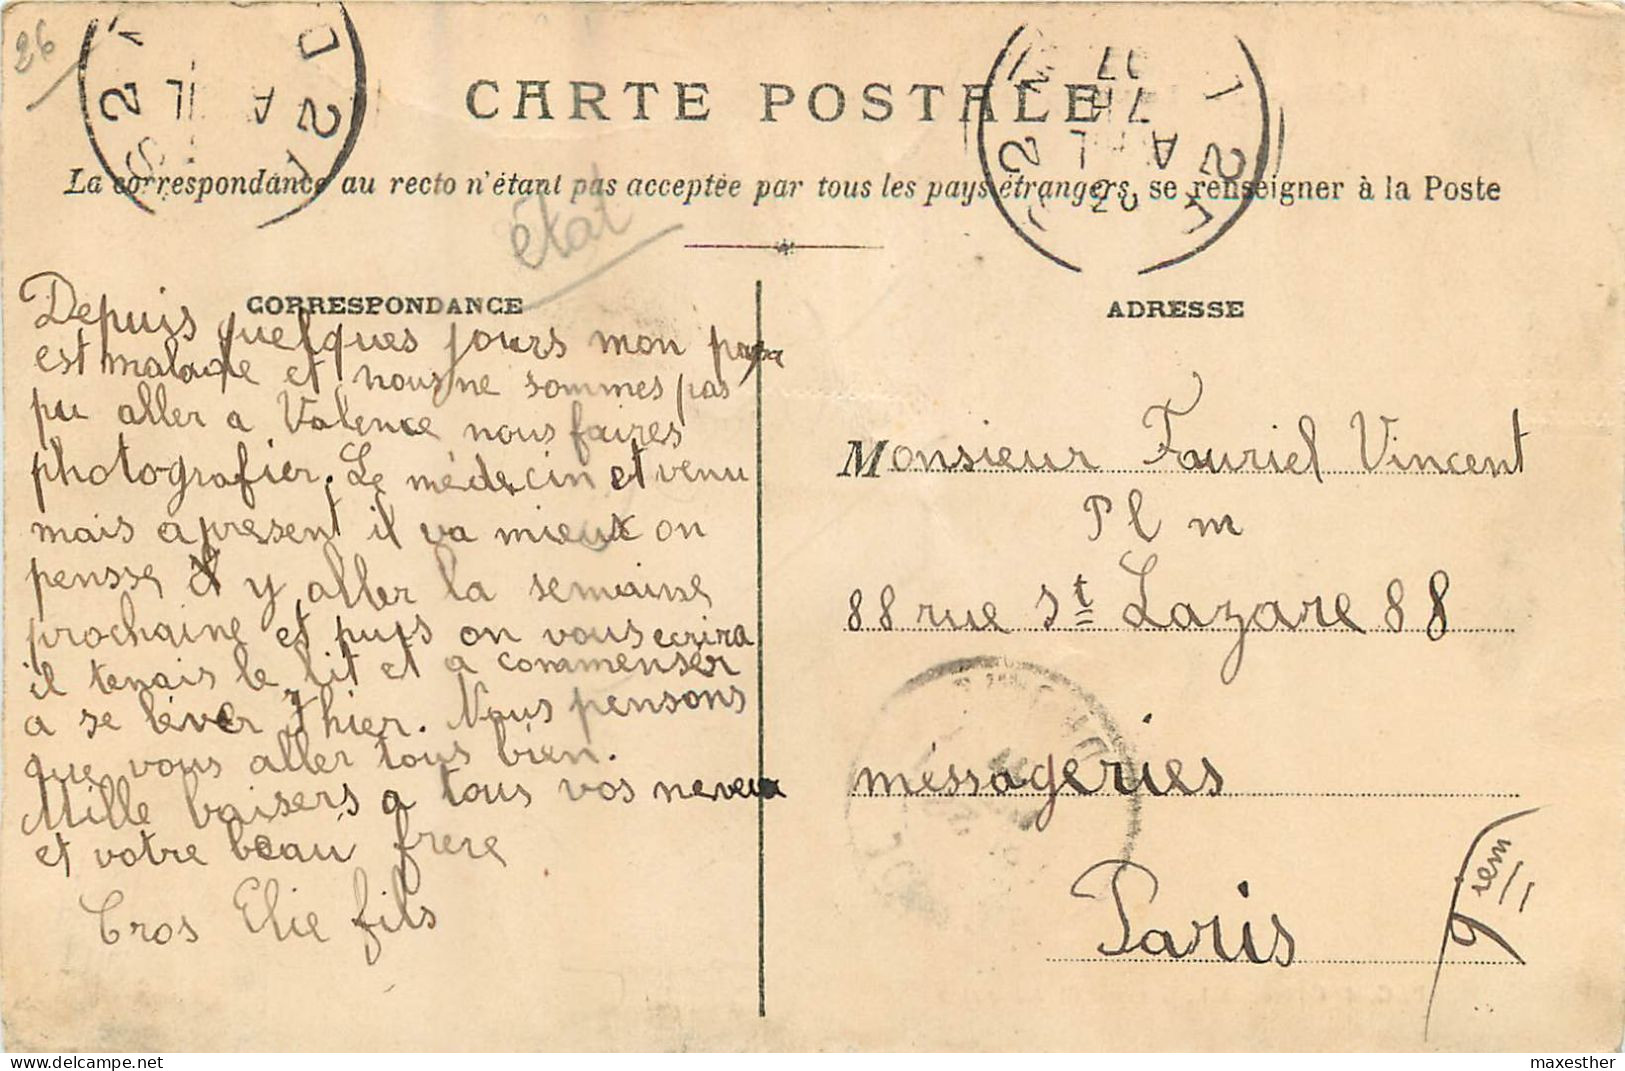 26
CARTE POSTALE
La correspondance au recto n'étant pas acceptée par tous les pays étrangers, se renseigner à la Poste
état
CORRESPONDANCE
Depuis quelques jours mon papa
est malade et nous ne sommes pas
pu aller a Valence nous faires
photografier. Le médecin et venu
mais apresent il va mieux on
pensse y aller la semaine
prochaine et puis on vous ecrira
il tenais le lit et a commenser
a se léver hier. Nous pensons
que vous aller tous bien.
Mille baisers a tous vos neveux
et votre beau frere
Cros Elie fils
ADRESSE
Monsieur Fauriel Vincent
P l m
88 rue St Lazare 88
méssageries
Paris
9iem
delcampe.net
maxesther